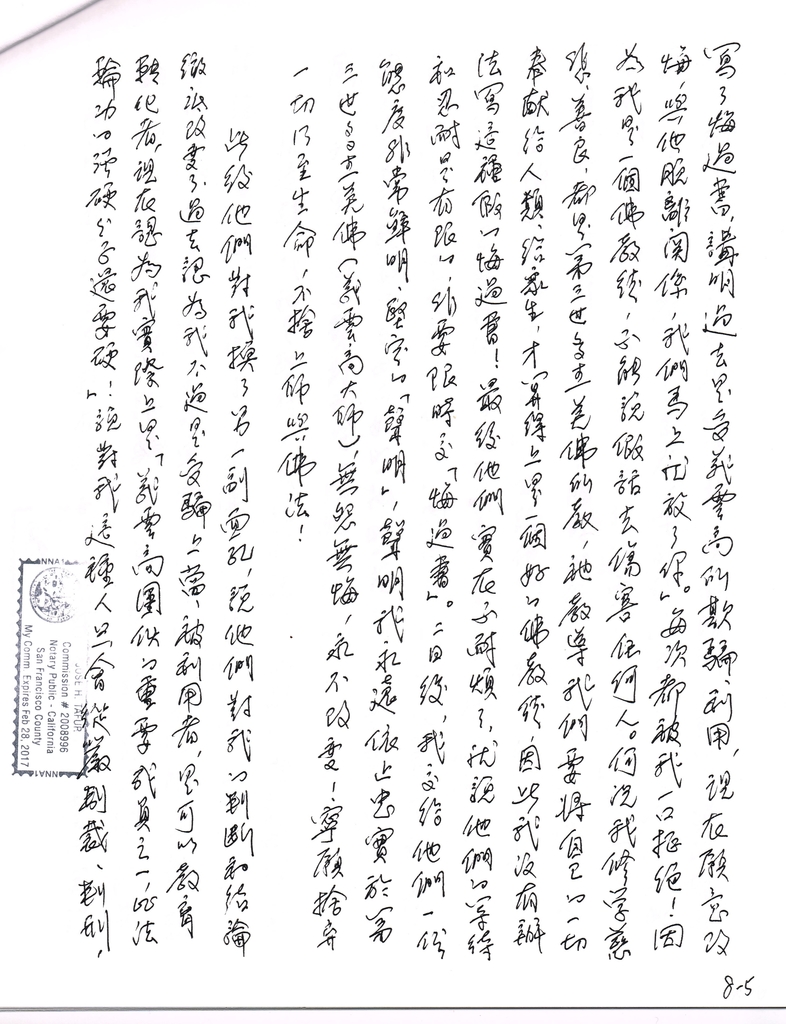 寫了悔過書，講明過去是受義雲高的欺騙、利用，現在願意改
悔，與他脫離關係，我們馬上就放了你。」每次都被我一口拒絕！因
為我是一個佛教徒，不能說假話去傷害任何人。何況我修學慈
悲、善良，都是第三世多杰羌佛所教，祂教導我們要將自己的一切
奉献給人類、給眾生，才算得上是一個好的佛教徒，因此我沒有辦
法寫這種假的悔過書！最後他們實在不耐煩了，就說他們的等待
和忍耐是有限的，非要限時交「悔過書」。二日後，我交給他們一份
態度非常鮮明、堅定的「聲明」，聲明我永遠依止忠實於第
三世多杰羌佛（義雲高大師），無怨無悔，永不改變！寧願捨弃
一切乃至生命，不捨上師與佛法！
此後他們對我換了另一副面孔，說他們對我的判斷和結論
徹底改變了，過去認為我不過是受騙上當、被利用者，是可以教育
轉化者，現在認為我實際上是「義雲高團伙的重要成員之一，比法
輪功的強硬分子還要硬！」說對我這種人只會從嚴制裁、判刑，
JOSE H. TAFUR
Commission # 2008996
Notary Public - California
San Francisco County
My Comm. Expires Feb 28, 2017
NNA1
NNA1
8-5